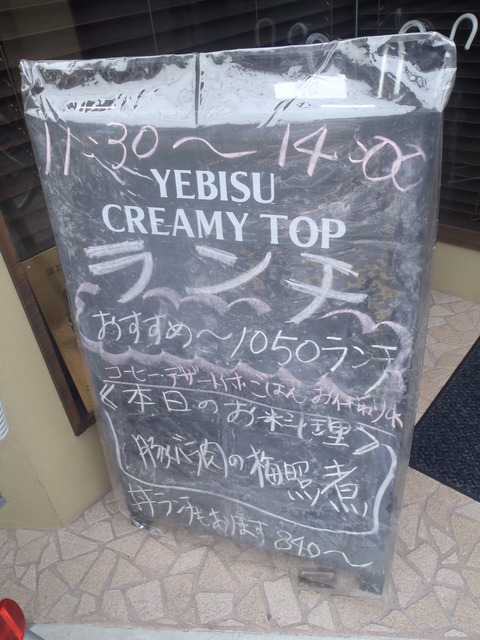 11:30〜14:00
YEBISU
CREAMY TOP
ランチ
おすすめ〜1050ランチ
コーヒー・デザート付 ごはん おかわりOK
《本日のお料理》
豚バラ肉の梅照煮
丼ランチもあります 840〜